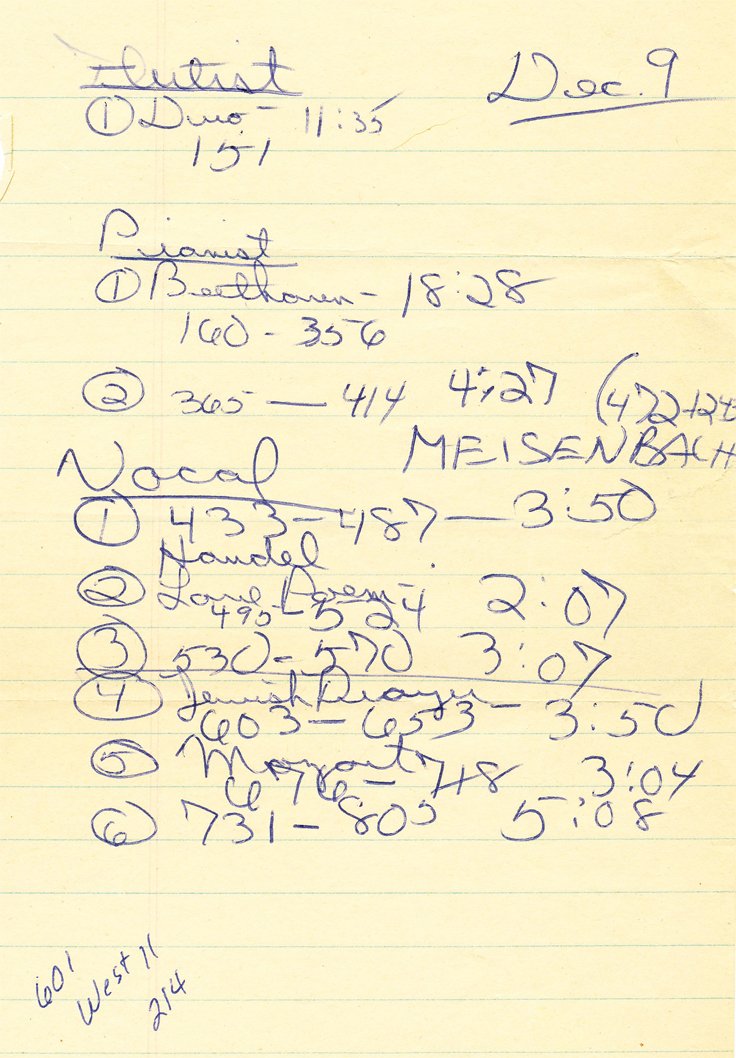 Flutist
Dec. 9
① Duo - 11:35
151
Pianist
① Beethoven - 18:28
160 - 356
② 365 — 414 4:27 (472-1243
MEISENBACH
Vocal
① 433 - 487 — 3:50
Handel
② Love Poem - 2:07
495 - 524
③ 530 - 570 3:07
④ Jewish Prayer
603 — 653 — 3:50
⑤ Mozart
676 - 718 3:04
⑥ 731 - 805 5:08
601
West 11
214